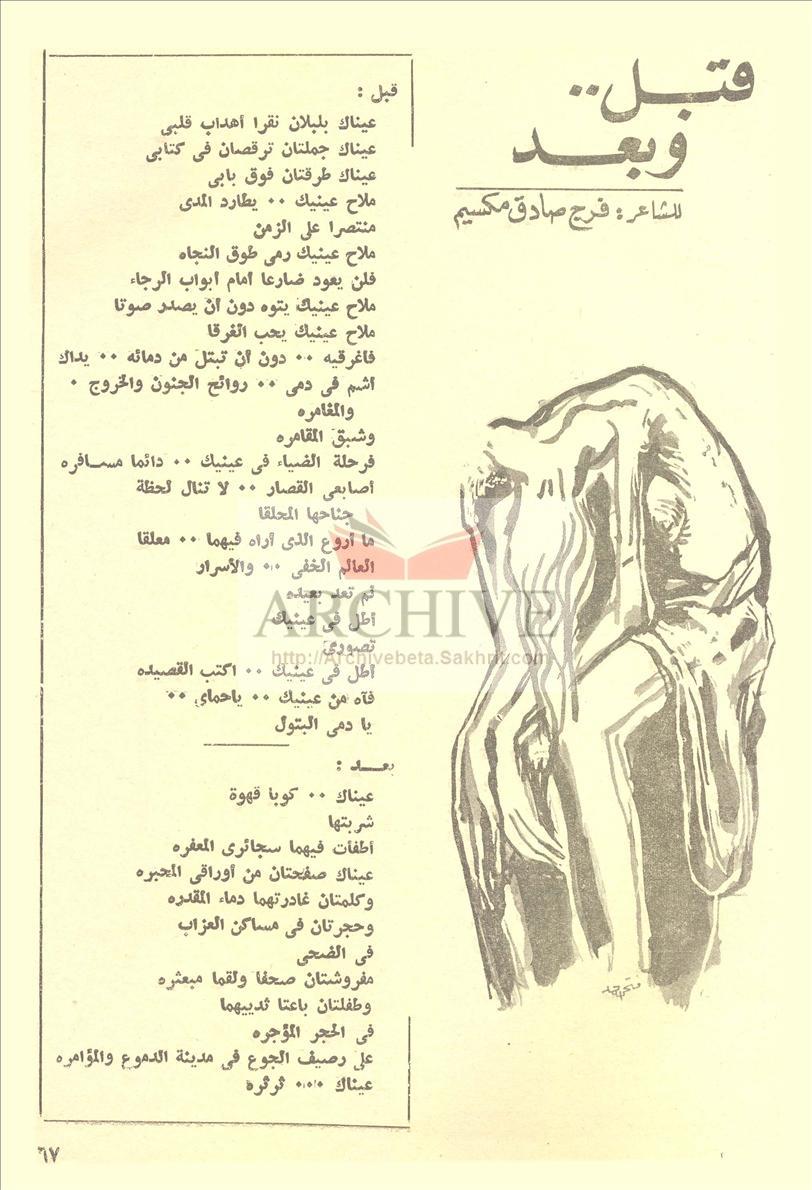 قبل..
وبعد
للشاعر: فرج صادق مكسيم
قبل :
عيناك بلبلان نقرا أهداب قلبي
عيناك جملتان ترقصان في كتابي
عيناك طرقتان فوق بابي
ملاح عينيك ٠٠ يطارد المدى
منتصرا على الزمن
ملاح عينيك رمى طوق النجاه
فلن يعود ضارعا أمام أبواب الرجاء
ملاح عينيك يتوه دون أن يصدر صوتا
ملاح عينيك يحب الغرقا
فاغرقيه ٠٠ دون أن تبتل من دمائه ٠٠ يداك
أشم في دمى ٠٠ روائح الجنون والخروج ٠
والمغامره
وشبق المقامره
فرحلة الضياء في عينيك ٠٠ دائما مسافره
أصابعى القصار ٠٠ لا تنال لحظة
جناحها المحلقا
ما أروع الذى أراه فيهما ٠٠ معلقا
العالم الخفى ٠٠ والأسرار
لم تعد بعيده
أطل في عينيك
تصورى
أطل في عينيك ٠٠ اكتب القصيده
فآه من عينيك ٠٠ ياحماى ٠٠
يا دمى البتول
بعد :
عيناك ٠٠ كوبا قهوة
شربتها
أطفأت فيهما سجائرى المعفره
عيناك صفحتان من أوراقى المحبره
وكلمتان غادرتهما دماء المقدره
وحجرتان في مساكن العزاب
في الضحى
مفروشتان صحفا ولقما مبعثره
وطفلتان باعتا ثدييهما
في الحجر المؤجره
على رصيف الجوع في مدينة الدموع والمؤامره
عيناك ٠٠٠ ثرثرة
٦٧
ARCHIVE
http://Archivebeta.Sakhrit.com